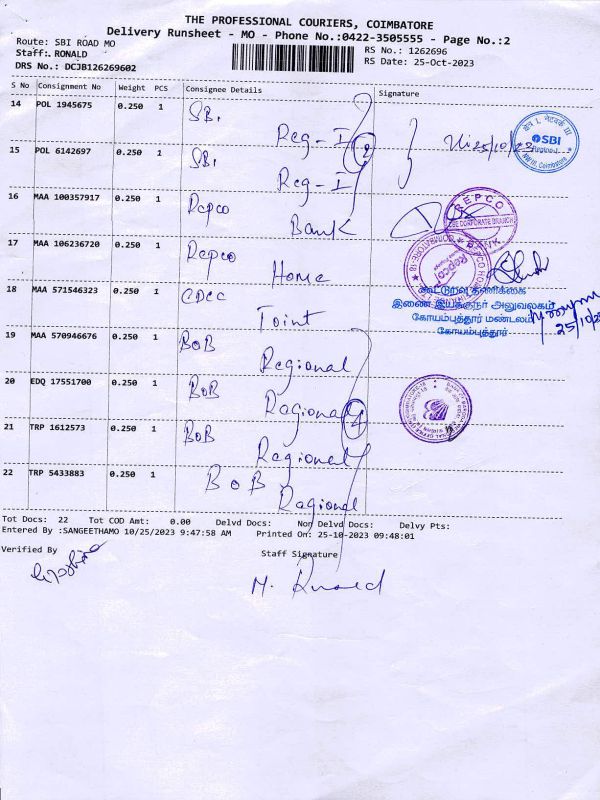 THE PROFESSIONAL COURIERS, COIMBATORE
Delivery Runsheet - MO - Phone No.:0422-3505555 - Page No.:2
Route: SBI ROAD MO
RS No.: 1262696
Staff: RONALD
RS Date: 25-Oct-2023
DRS No.: DCJB126269602
S No Consignment No Weight PCS Consignee Details Signature
14 POL 1945675 0.250 1 SBI Reg-I
15 POL 6142697 0.250 1 SBI Reg-I
2
25/10/23
SBI
Region-I
Coimbatore
16 MAA 100357917 0.250 1 Repco Bank
REPCO
CBE CORPORATE BRANCH
BANK
17 MAA 106236720 0.250 1 Repco Home
Repco
18 MAA 571546323 0.250 1 CDCC Joint
கூட்டுறவு தணிக்கை
இணை இயக்குநர் அலுவலகம்
கோயம்புத்தூர் மண்டலம்
கோயம்புத்தூர்
19 MAA 570946676 0.250 1 BOB Regional
20 EDQ 17551700 0.250 1 BOB Regional
4
21 TRP 1612573 0.250 1 BOB Regional
22 TRP 5433883 0.250 1 BOB Regional
Tot Docs: 22 Tot COD Amt: 0.00 Delvd Docs: Non Delvd Docs: Delvy Pts:
Entered By :SANGEETHAMO 10/25/2023 9:47:58 AM Printed On: 25-10-2023 09:48:01
Verified By
Staff Signature